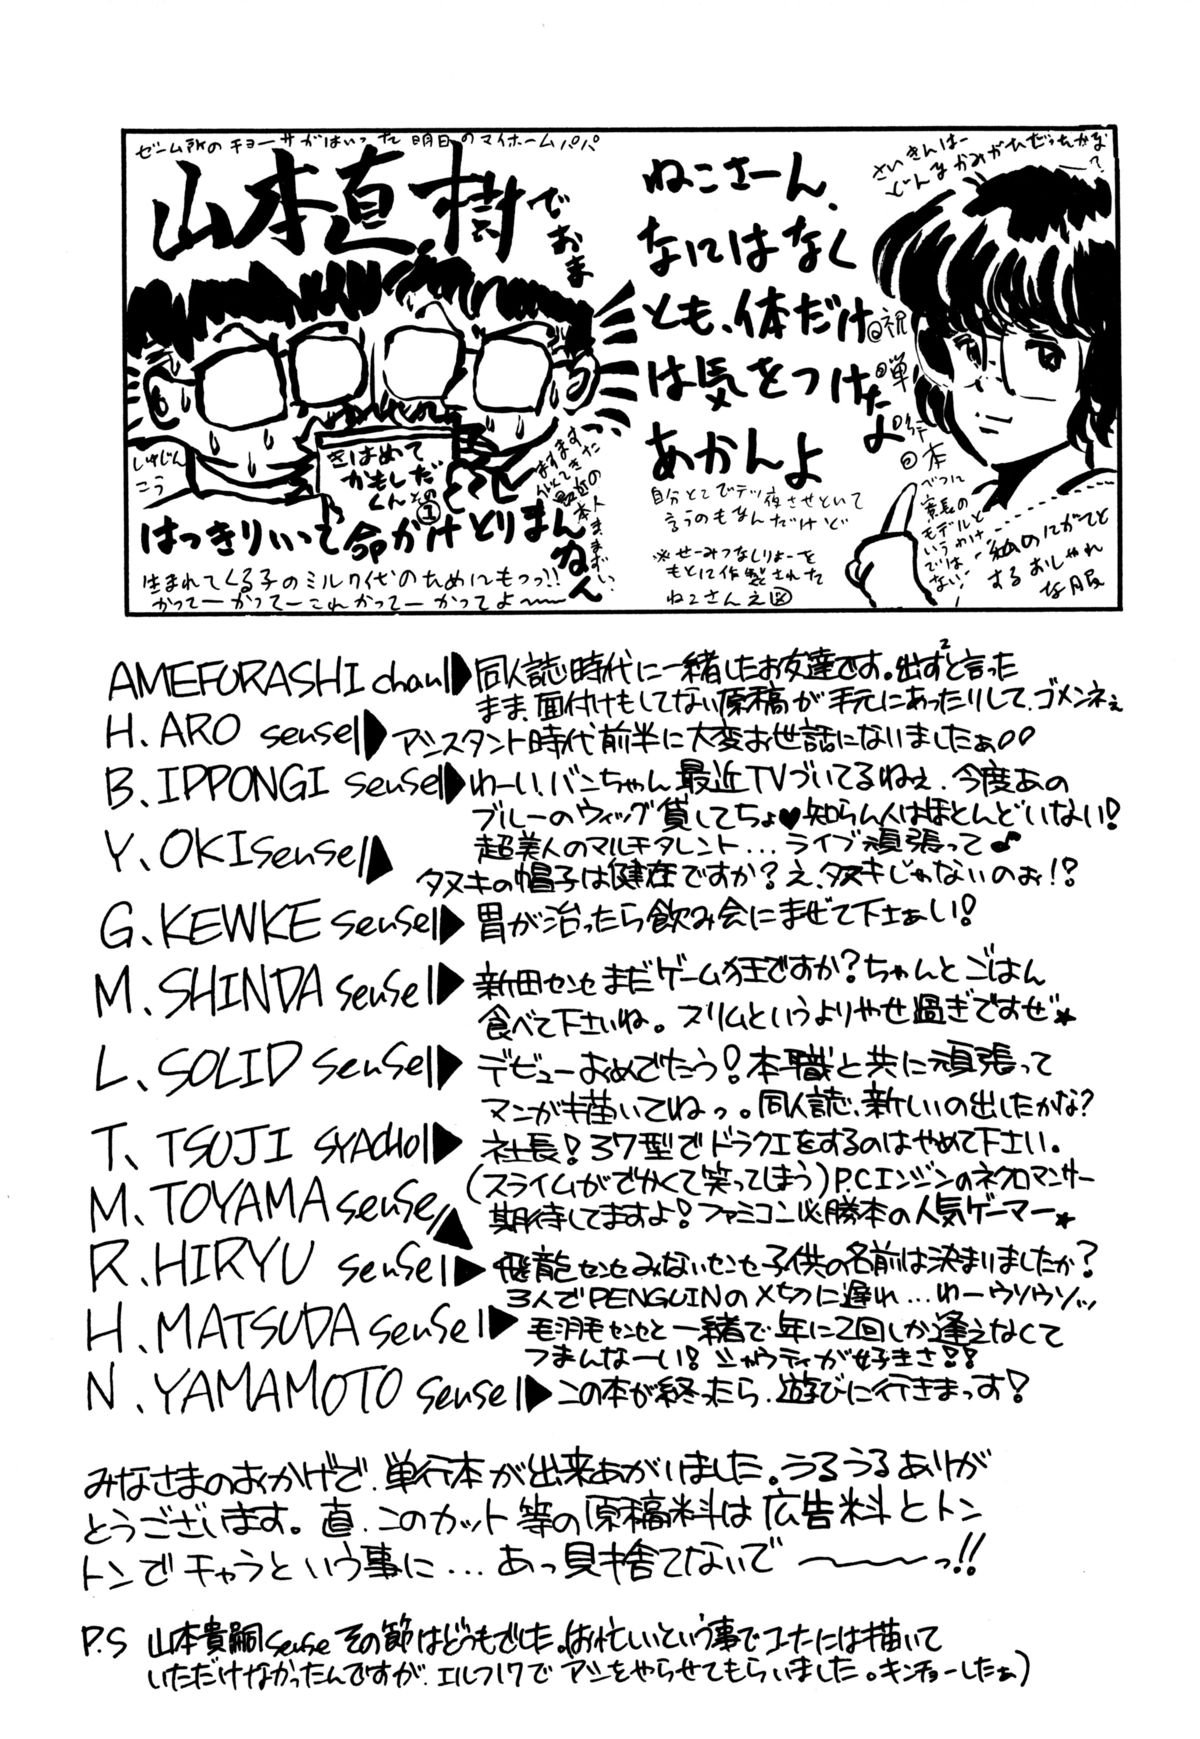 ぜーム所のチョーサがはいった 明日のマイホームパパ
山本直樹でおま
しげじん
こう
きはめて
かもしだ
くんその
①
はっきりいって命がけどりまんねん
生まれてくる子のミルク代のためにもっっ!!
かってー かってー これかってー かってよ〜〜
ねこさーん、
なにはなく
とも、体だけ
は気をつけたよ
あかんよ
祝 単行本
自分とこでテツ夜させといて
言うのもなんだけど
※せーみつなしりょーを
もとに作製された
ねこさんえ図
さいきんはー
どんなかみがただったかな?
べつに
寛長の
モデルと
いうわけ
ではない!
私のにがてと
するおしゃれ
な服
AMEFURASHI chan▶同人誌時代に一緒したお友達です。出ず²と言った
まま、面付けもしてない原稿が手元にあったりして、ゴメンネぇ
H. ARO sensei▶アシスタント時代前半に大変お世話になりましたぁ〃
B. IPPONGI sensei▶わーい、バンちゃん最近TVづいてるねぇ。今度あの
ブルーのウィッグ貸してちょ♥知らん人はほとんどいない!
超美人のマルチタレント...ライブ頑張って♪
Y. OKI sensei▶タヌキの帽子は健在ですか?え、タヌキじゃないのぉ!?
G. KEWKE sensei▶胃が治ったら飲み会にまぜて下さぁい!
M. SHINDA sensei▶新田センセまだゲーム狂ですか?ちゃんとごはん
食べて下さいね。スリムというよりやせ過ぎですぜ★
L. SOLID sensei▶デビューおめでたう!本職と共に頑張って
マンガ描いてねっ。同人誌、新しいの出したかな?
T. TSUJI SYACHO▶社長!37型でドラクエをするのはやめて下さい。
(スライムがでかくて笑ってしまう)
M. TOYAMA sensei▶P.Cエンジンのネクロマンサー
期待してますよ!ファミコン必勝本の人気ゲーマー★
R. HIRYU sensei▶飛龍センセみないセンセ子供の名前は決まりましたか?
3人でPENGUINの〆切に遅れ...わーウソウソッ
H. MATSUDA sensei▶毛羽毛センセと一緒で年に2回しか逢えなくて
つまんなーい!シャウティが好きさ!!
N. YAMAMOTO sensei▶この本が終ったら、遊びに行きまっす!
みなさまのおかげで、単行本が出来あがりました。うるうるありが
とうございます。直、このカット等の原稿料は広告料とトン
トンでチャラという事に...あっ見捨てないで〜〜っ!!
P.S 山本貴嗣senseその節はどうもでした。(お忙しいという事でコータには描いて
いただけなかったんですが、エルフ17でアシをやらせてもらいました。キンチョーしたぁ)